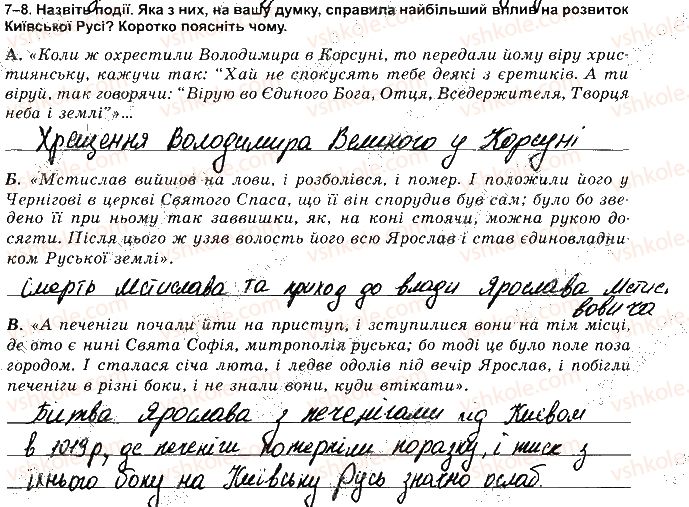 7–8. Назвіть події. Яка з них, на вашу думку, справила найбільший вплив на розвиток
Київської Русі? Коротко поясніть чому.
А. «Коли ж охрестили Володимира в Корсуні, то передали йому віру хрис-
тиянську, кажучи так: “Хай не спокусять тебе деякі з єретиків. А ти
віруй, так говорячи: “Вірую во Єдиного Бога, Отця, Вседержителя, Творця
неба і землі”»...
Хрещення Володимира Великого у Корсуні
Б. «Мстислав вийшов на лови, і розболівся, і помер. І положили його у
Чернігові в церкві Святого Спаса, що її він спорудив був сам; було бо зве-
дено її при ньому так заввишки, як, на коні стоячи, можна рукою до-
сягти. Після цього ж узяв волость його всю Ярослав і став єдиновладни-
ком Руської землі».
Смерть Мстислава та прихід до влади Ярослава Мстис-
вовича
В. «А печеніги почали йти на приступ, і зступилися вони на тім місці,
де ото є нині Свята Софія, митрополія руська; бо тоді це було поле поза
городом. І сталася січа люта, і ледве одолів під вечір Ярослав, і побігли
печеніги в різні боки, і не знали вони, куди втікати».
Битва Ярослава з печенігами під Києвом
в 1019р, де печеніги потерпіли поразку, і тиск з
їхнього боку на Київську Русь значно ослаб.